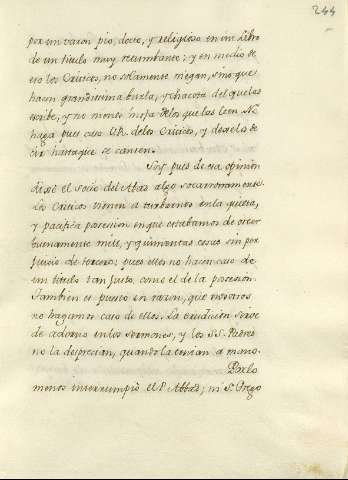 244
por un varon pio, docto, y religioso en un libro
de un titulo muy retumbante; y en medio de
eso los Criticos, no solamente niegan, sino que
hacen grandissima burla, y chacota del que las
escribe, y no menos mofa de los que las leen. No
haga pues caso V.R. de los Criticos, y dexelos de
cir hasta que se cansen.
Soy pues de esa opinion
dixo el Socio del Abad algo socarronamente.
Los Criticos vienen a turbarnos en la quieta,
y pacifica posesion en que estabamos de creer
buenamente mil, y quinientas cosas sin per
juicio de terceros; pues ellos no hacen caso de
un titulo tan justo, como el de la posesion.
Tambien es puesto en razon, que nosotros
no hagamos caso de ellos. La erudicion sirve
de adorno en los sermones, y los S.S. Padres
no la desprecian, quando la tenian a mano.
Por lo
menos interrumpiò el P. Abbad; ni S. Grego